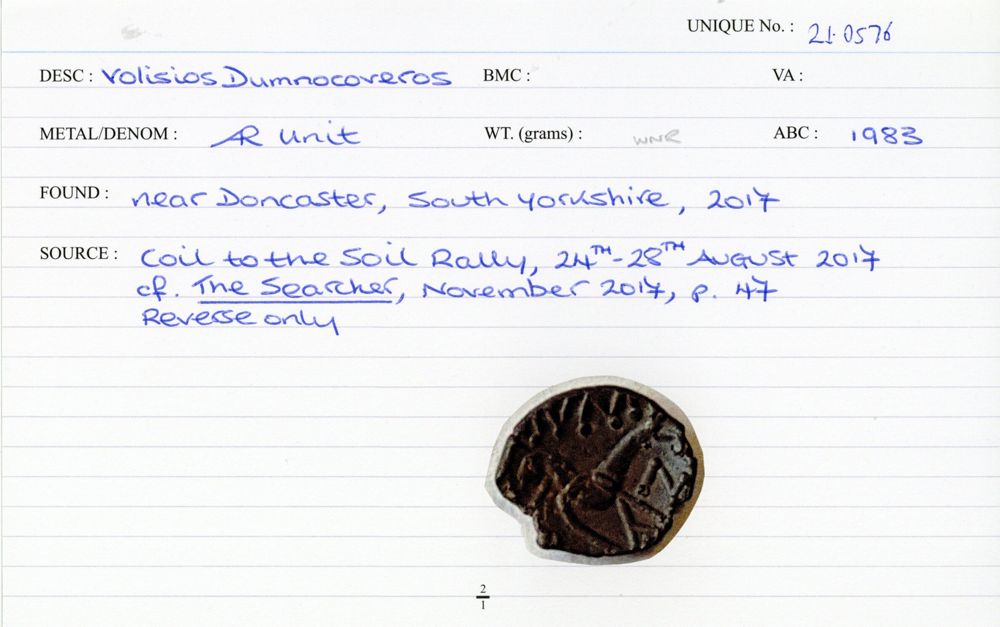 UNIQUE No. : 21.0576
DESC : Volisios Dumnocoveros BMC : VA :
METAL/DENOM : AR unit WT. (grams) : WNR ABC : 1983
FOUND : near Doncaster, South Yorkshire, 2017
SOURCE : Coil to the Soil Rally, 24TH-28TH AUGUST 2017
cf. The Searcher, November 2017, p. 47
Reverse only
2
1